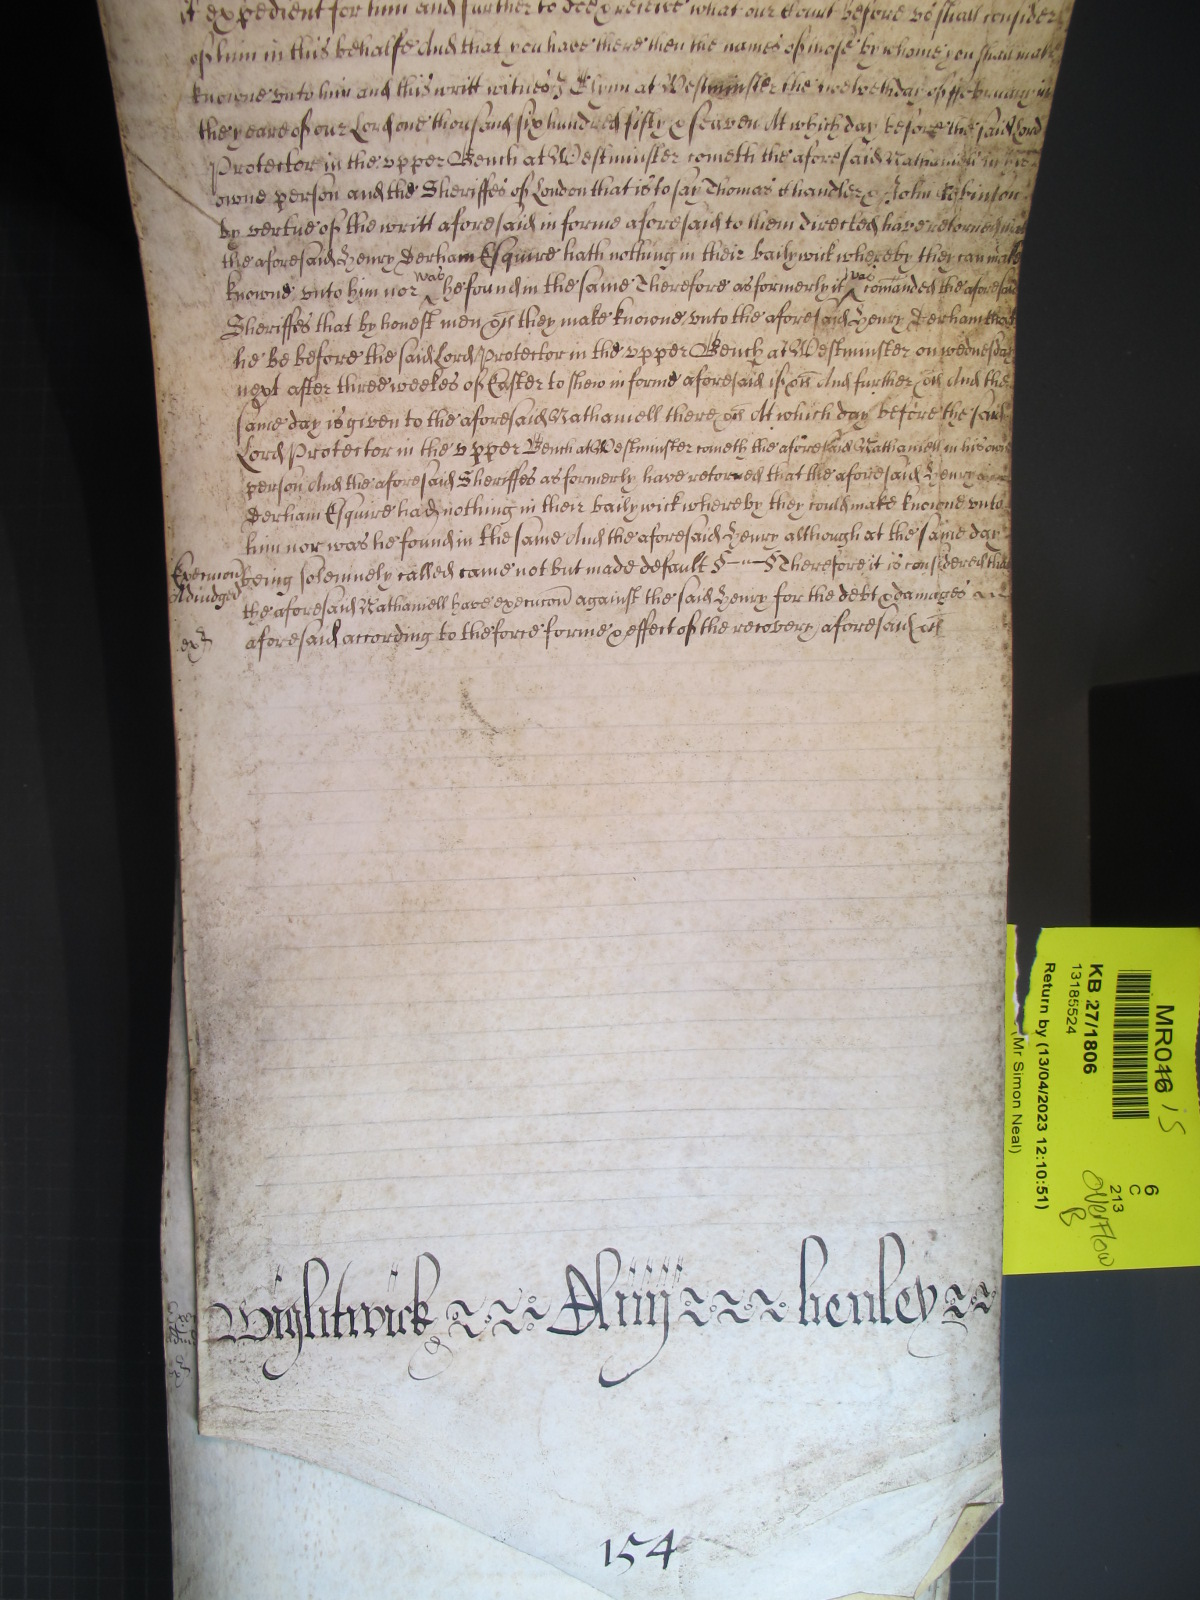 it expedient for him and further to doe & receive what our Court before us shall consider
of him in this behalfe And that you have there then the names of those by whome you shall make
knowne unto him and this writt witnes J Glynn at Westminster the twelveth day of ffebruary in
the yeare of our Lord one thousand six hundred fifty & seaven At which day before the said Lord
Protector in the upper Bench at Westminster cometh the aforesaid Nathaniell in his
owne person and the Sheriffes of London that is to say Thomas Chandler & John
by vertue of the writt aforesaid in forme aforesaid to them directed have retorned that
the aforesaid Henry Derham Esquire hath nothing in their bailywick whereby they can make
knowne unto him nor was he found in the same Therefore as formerly it was comanded the aforesaid
Sheriffes that by honest men &c they make knowne unto the aforesaid Henry Derham that
he be before the said Lord Protector in the upper Bench at Westminster on wednesday
next after three weekes of Easter to shew in forme aforesaid if &c And further &c And the
same day is given to the aforesaid Nathaniell there &c At which day before the said
Lord Protector in the upper Bench at Westminster cometh the aforesaid Nathaniell in his owne
person And the aforesaid Sheriffes as formerly have retorned that the aforesaid Henry
Derham Esquire had nothing in their bailywick whereby they could make knowne unto
him nor was he found in the same And the aforesaid Henry although at the same day
Execucon being solemnely called came not but made default Therefore it is considered that
Adiudged the aforesaid Nathaniell have execucon against the said Henry for the debt & damages
aforesaid according to the force forme & effect of the recovery aforesaid &c
exr
Wightwick Aliiij henley
154
MR046 15
KB 27/1806
13185524
Return by (13/04/2023 12:10:51)
(Mr Simon Neal)
6
C
213
OVERFlow
B